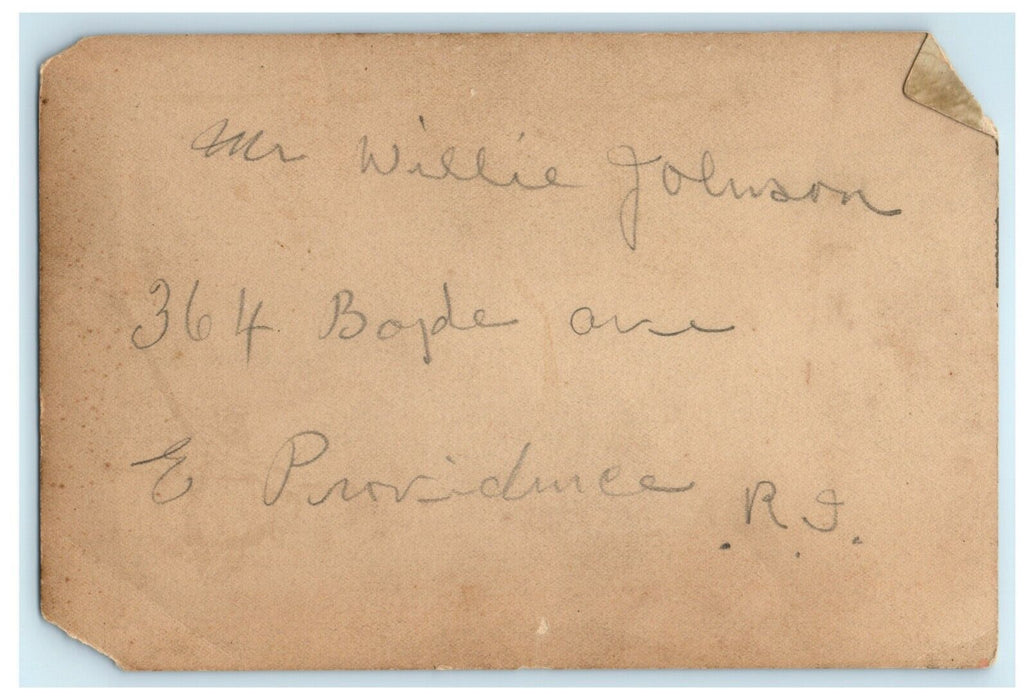 Mr Willie Johnson
364 Boyde ave
E Providence R.I.